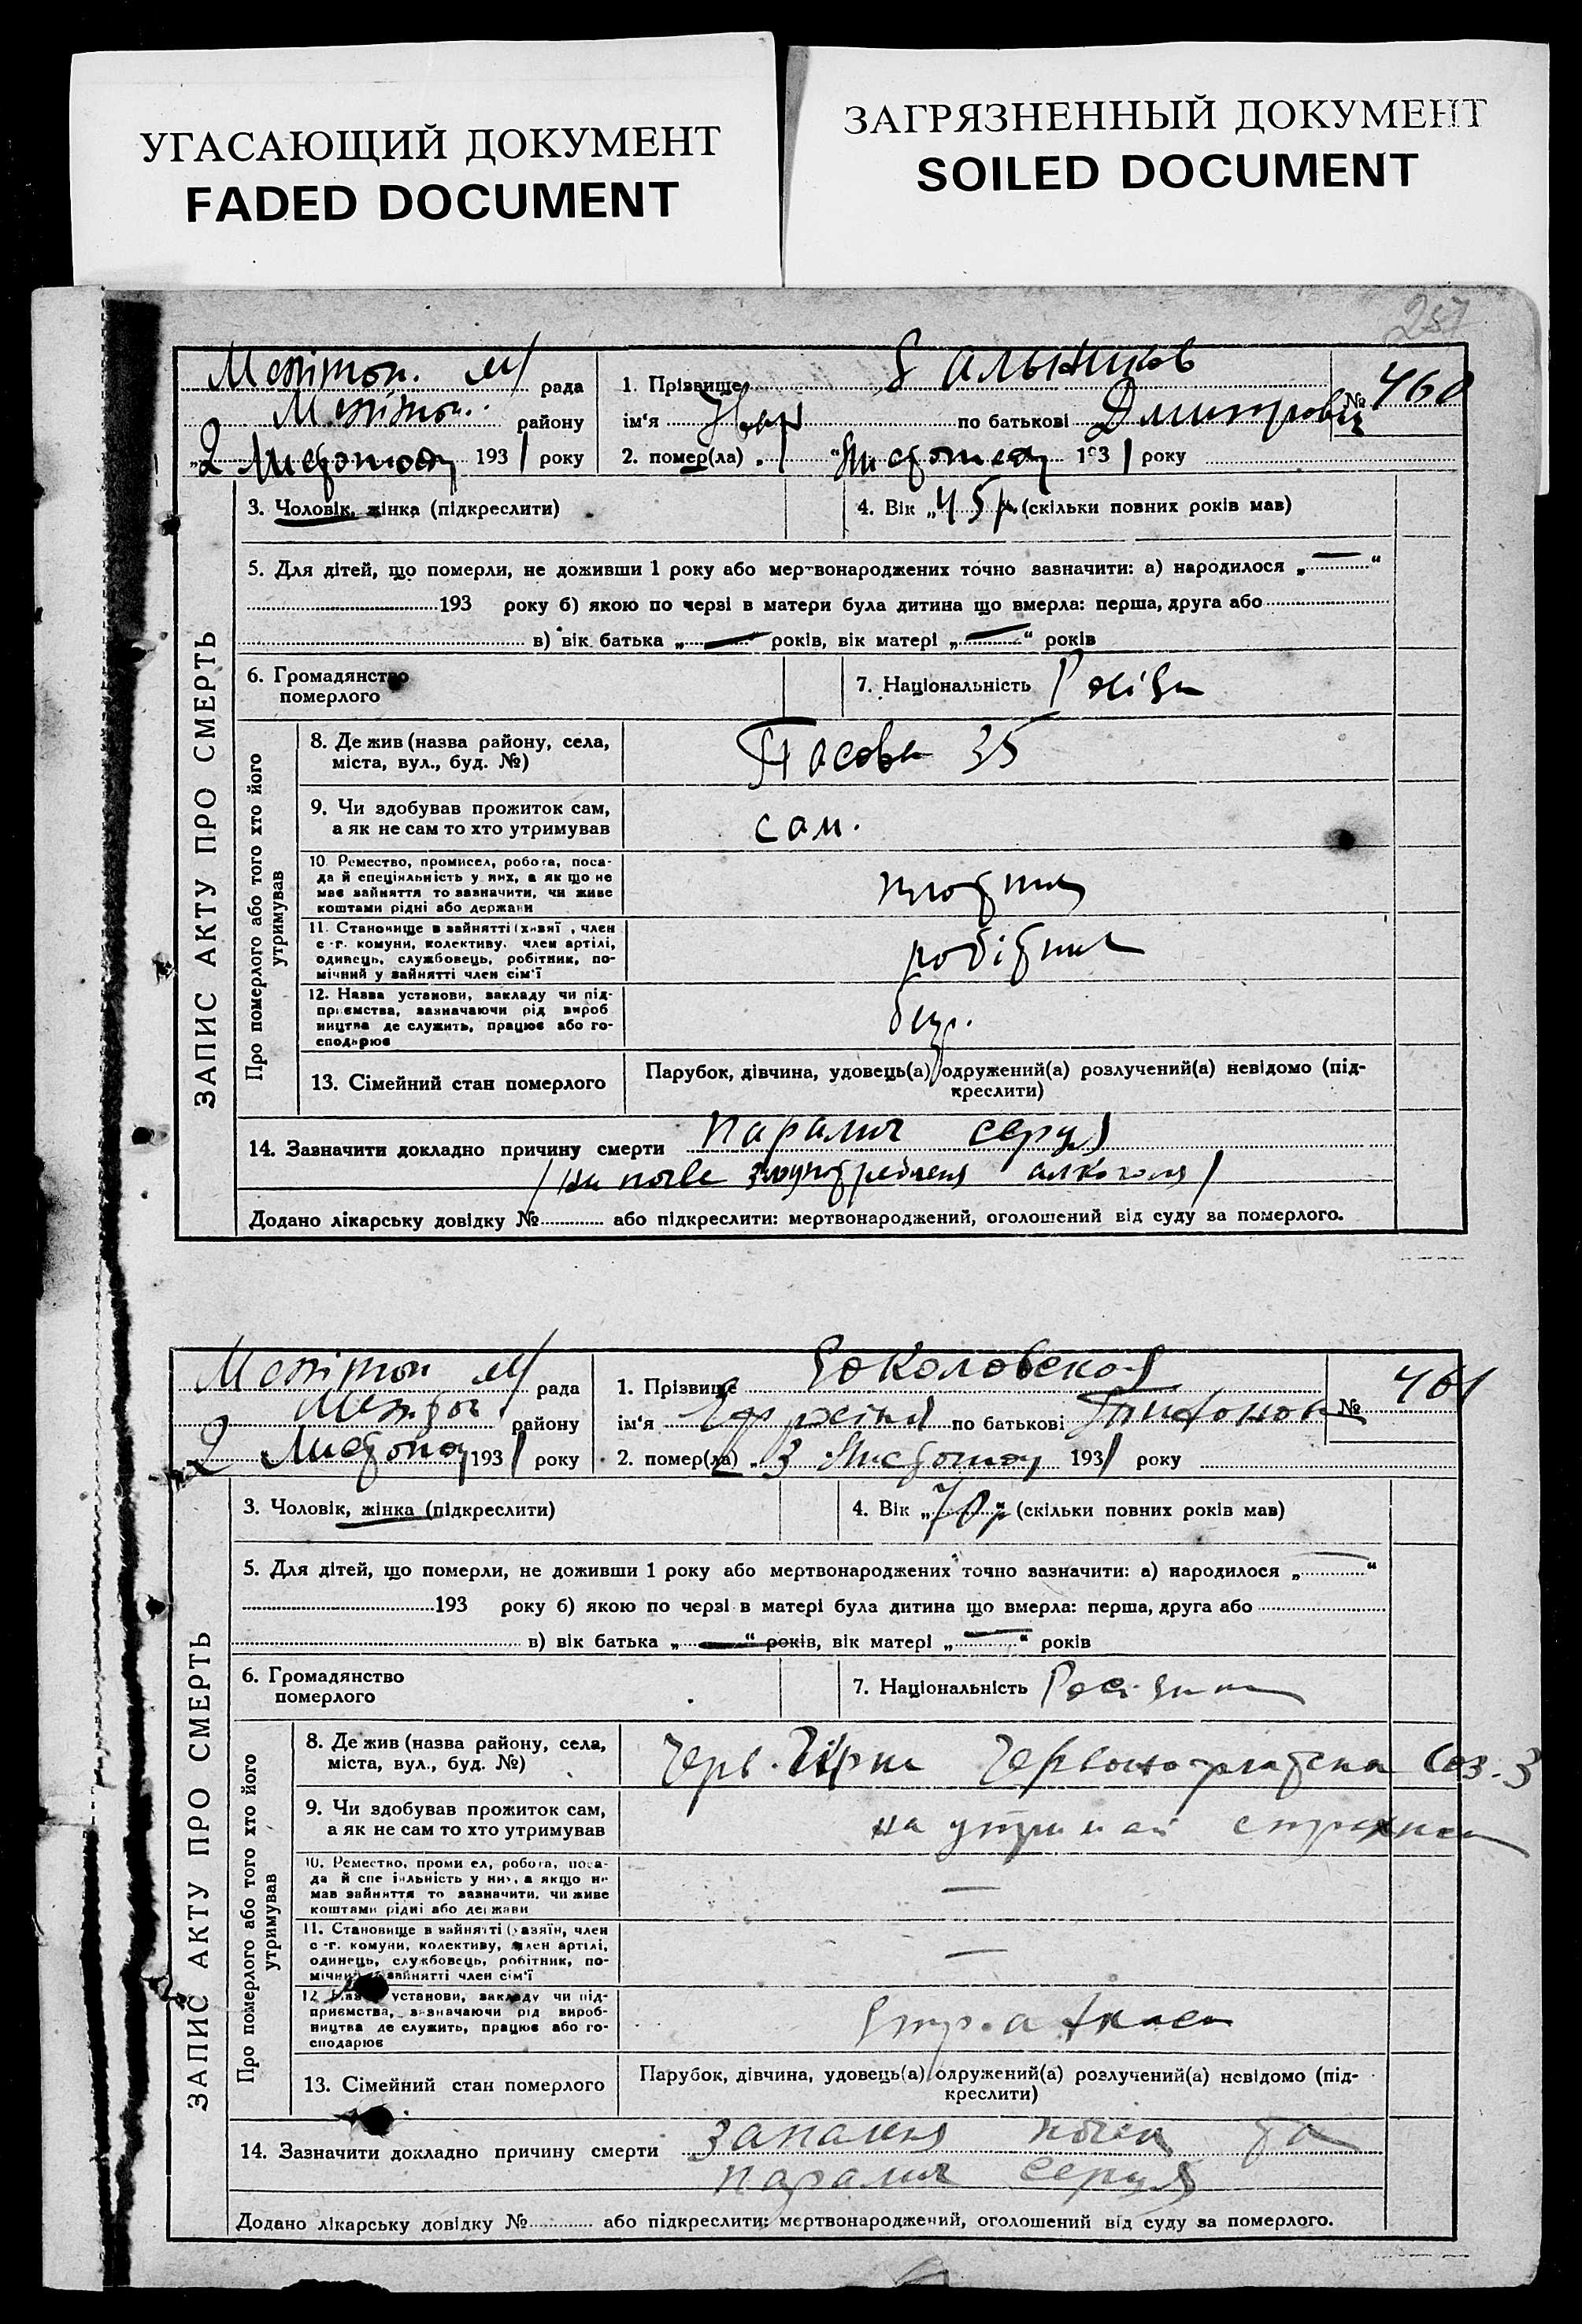 УГАСАЮЩИЙ ДОКУМЕНТ
FADED DOCUMENT
ЗАГРЯЗНЕННЫЙ ДОКУМЕНТ
SOILED DOCUMENT
257
Мелітоп. м/ рада
Мелітоп. району
„2 Листопада 1931 року
1. Прізвище Сальников
ім‘я по батькові Дмитрович
№ 460
2. помер(ла) „ “ Листопада 1931 року
ЗАПИС АКТУ ПРО СМЕРТЬ
3. Чоловік, жінка (підкреслити)
4. Вік „45 р.“ (скільки повних років мав)
5. Для дітей, що померли, не доживши 1 року або мертвонароджених точно зазначити: а) народилося „—“
193 року б) якою по черзі в матери була дитина що вмерла: перша, друга або
в) вік батька „—“ років, вік матері „—“ років
6. Громадянство
померлого
7. Національність
Про померлого або того хто його
утримував
8. Де жив (назва району, села,
міста, вул., буд. №)
35
9. Чи здобував прожиток сам,
а як не сам то хто утримував
сам.
10. Ремество, промисел, робота, поса-
да й спеціяльність у них, а як що не
має зайняття то зазначити, чи живе
коштами рідні або держави
11. Становище в зайнятті (хазяї, член
с-г. комуни, колективу, член артілі,
одинець, службовець, робітник, по-
мічний у зайнятті член сім‘ї
робітник
12. Назва установи, закладу чи під-
приємства, зазначаючи рід вироб
ництва де служить, працює або го-
сподарює
13. Сімейний стан померлого
Парубок, дівчина, удовець(а) одружений(а) розлучений(а) невідомо (під-
креслити)
14. Зазначити докладно причину смерти параліч серця
/ на алкоголя /
Додано лікарську довідку № або підкреслити: мертвонароджений, оголошений від суду за померлого.
Мелітоп м/ рада
району
2 Листопад 1931 року
1. Прізвище Соколовская
ім‘я по батькові
№ 461
2. помер(ла) „3 Листопад 1931 року
ЗАПИС АКТУ ПРО СМЕРТЬ
3. Чоловік, жінка (підкреслити)
4. Вік „70 р“ (скільки повних років мав)
5. Для дітей, що померли, не доживши 1 року або мертвонароджених точно зазначити: а) народилося „—“
193 року б) якою по черзі в матері була дитина що вмерла: перша, друга або
в) вік батька „—“ років, вік матері „—“ років
6. Громадянство
померлого
7. Національність
Про померлого або того хто його
утримував
8. Де жив (назва району, села,
міста, вул., буд. №)
Черв. Гірка 3
9. Чи здобував прожиток сам,
а як не сам то хто утримував
на
10. Ремество, проми ел, робота, поса-
да й спе іяльність у них, а якщо не
мав зайняття то зазначити, чи живе
коштами рідні або держави
—
11. Становище в зайнятті (хазяїн, член
с-г. комуни, колективу, член артілі,
одинець, службовець, робітник, по-
мічний у зайнятті член сім‘ї
—
12. Назва установи, закладу чи під-
приємства, зазначаючи рід вироб-
ництва де служить, працює або го-
сподарює
13. Сімейний стан померлого
Парубок, дівчина, удовець(а) одружений(а) розлучений(а) невідомо (під-
креслити)
14. Зазначити докладно причину смерти запаленя нирок та
параліч серця
Додано лікарську довідку № або підкреслити: мертвонароджений, оголошений від суду за померлого.